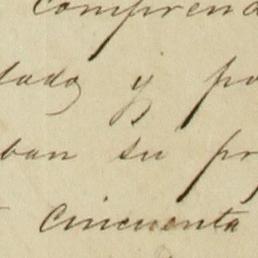 comprend
dado y po
ban su pr
cincuenta